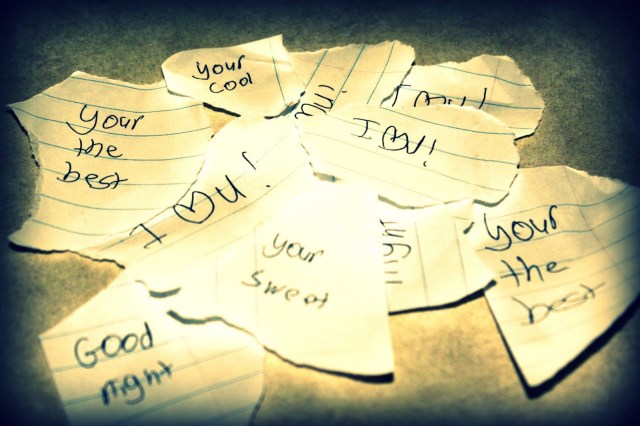 your
cool
your
the
best
I ♡ U!
♡ U!
I ♡ U!
I ♡ U!
your
sweat
your
the
best
Good
night